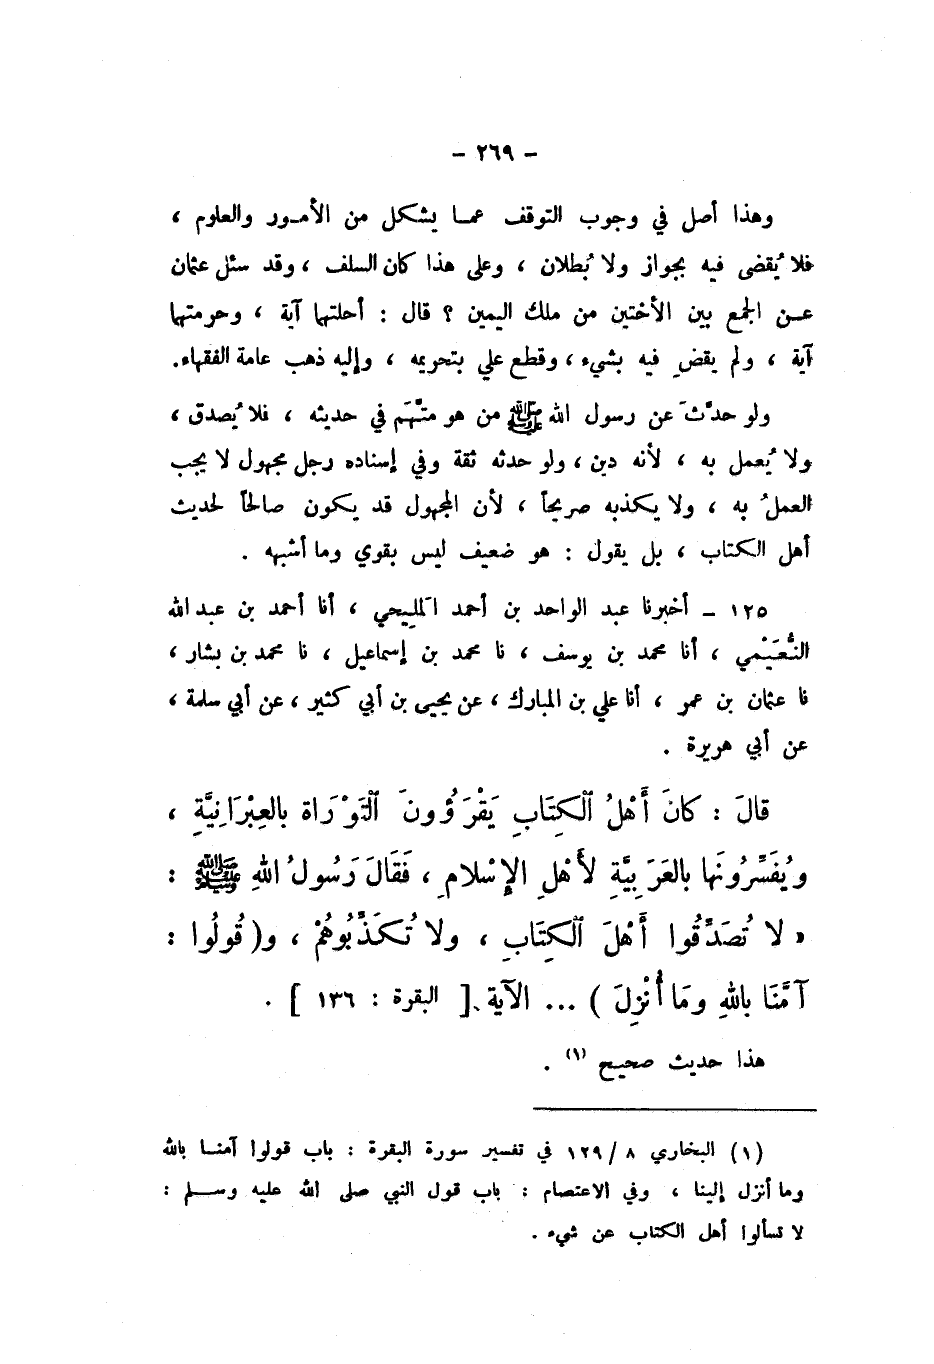 - ٢٦٩ -
وهذا أصل في وجوب التوقف عمـا يشكل من الأمـور والعلوم ،
فلا يُقضى فيه بجواز ولا بُطلان ، وعلى هذا كان السلف ، وقد سئل عثمان
عـن الجمع بين الأختين من ملك اليمين ؟ قال : أحلتها آية ، وحرمتها
آية ، ولم يقضِ فيه بشيء ، وقطع علي بتحريمه ، وإليه ذهب عامة الفقهاء.
ولو حدَّثَ عن رسول الله ﷺ من هو متَّهَم في حديثه ، فلا يُصدق ،
ولا يُعمل به ، لأنه دين ، ولو حدثه ثقة وفي إسناده رجل مجهول لا يجب
العملُ به ، ولا يكذبه صريحاً ، لأن المجهول قد يكون صالحاً لحديث
أهل الكتاب ، بل يقول : هو ضعيف ليس بقوي وما أشبهه .
١٢٥ - أخبرنا عبد الواحد بن أحمد المَلِيحي ، أنا أحمد بن عبد الله
النُّعَيْمي ، أنا محمد بن يوسف ، نا محمد بن إسماعيل ، نا محمد بن بشار ،
نا عثمان بن عمر ، أنا علي بن المبارك ، عن يحيى بن أبي كثير ، عن أبي سلمة ،
عن أبي هريرة .
قالَ : كانَ أَهْلُ الكِتَابِ يَقْرَؤُونَ التَّوْرَاةَ بالعِبْرَانِيَّةِ ،
ويُفَسِّرُونَها بالعَرَبِيَّةِ لأَهْلِ الإِسْلامِ ، فَقَالَ رَسُولُ اللهِ ﷺ :
« لا تُصَدِّقُوا أَهْلَ الكِتَابِ ، ولا تُكَذِّبُوهُمْ ، و( قُولُوا :
آمَنَّا باللهِ ومَا أُنْزِلَ ) ... الآية [ البقرة : ١٣٦ ] .
هذا حديث صحيح (١) .
(١) البخاري ٨ / ١٢٩ في تفسير سورة البقرة : باب قولوا آمنـا بالله
وما أنزل إلينا ، وفي الاعتصام : باب قول النبي صلى الله عليه وسـلم :
لا تسألوا أهل الكتاب عن شيء .